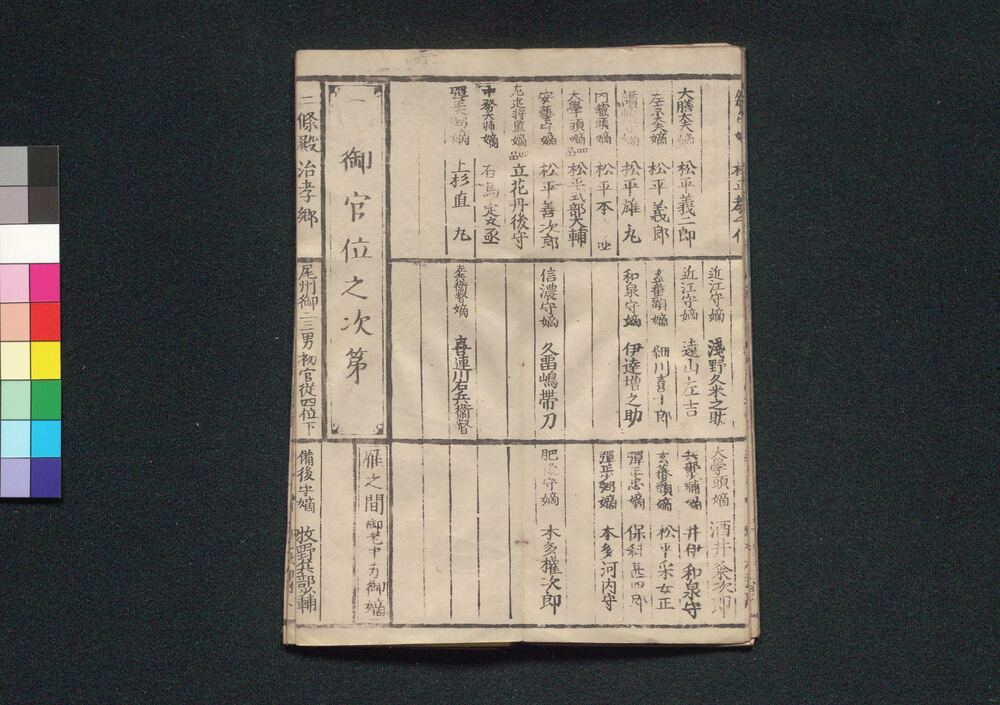 大膳大夫嫡 松平義二郎
左京大夫嫡 松平義郎
讃岐守嫡 松平雄丸
内蔵頭嫡 松平本
大學頭嫡 四品 松平式部大輔
安藝守嫡 松平善次郎
左近将監嫡 四品 立花丹後守
中務大輔嫡 有馬
彈正大弼嫡 上杉直丸
近江守嫡 淺野久米之助
近江守嫡 遠山左吉
玄蕃頭嫡 細川喜十郎
和泉守嫡 伊達増之助
信濃守嫡 久畄嶋帯刀
兵衞督嫡 喜連川右兵衞督
大学頭嫡 酒井
兵部少輔嫡 井伊和泉守
玄蕃頭嫡 松平采女正
彈正忠嫡 保科甚四郎
彈正少弼嫡 本多河内守
肥後守嫡 本多權次郎
御官位之次第
雁之間 御老中方御嫡
二條殿治孝郷
尾州御二三男初官従四位下
備後守嫡 牧野兵部少輔